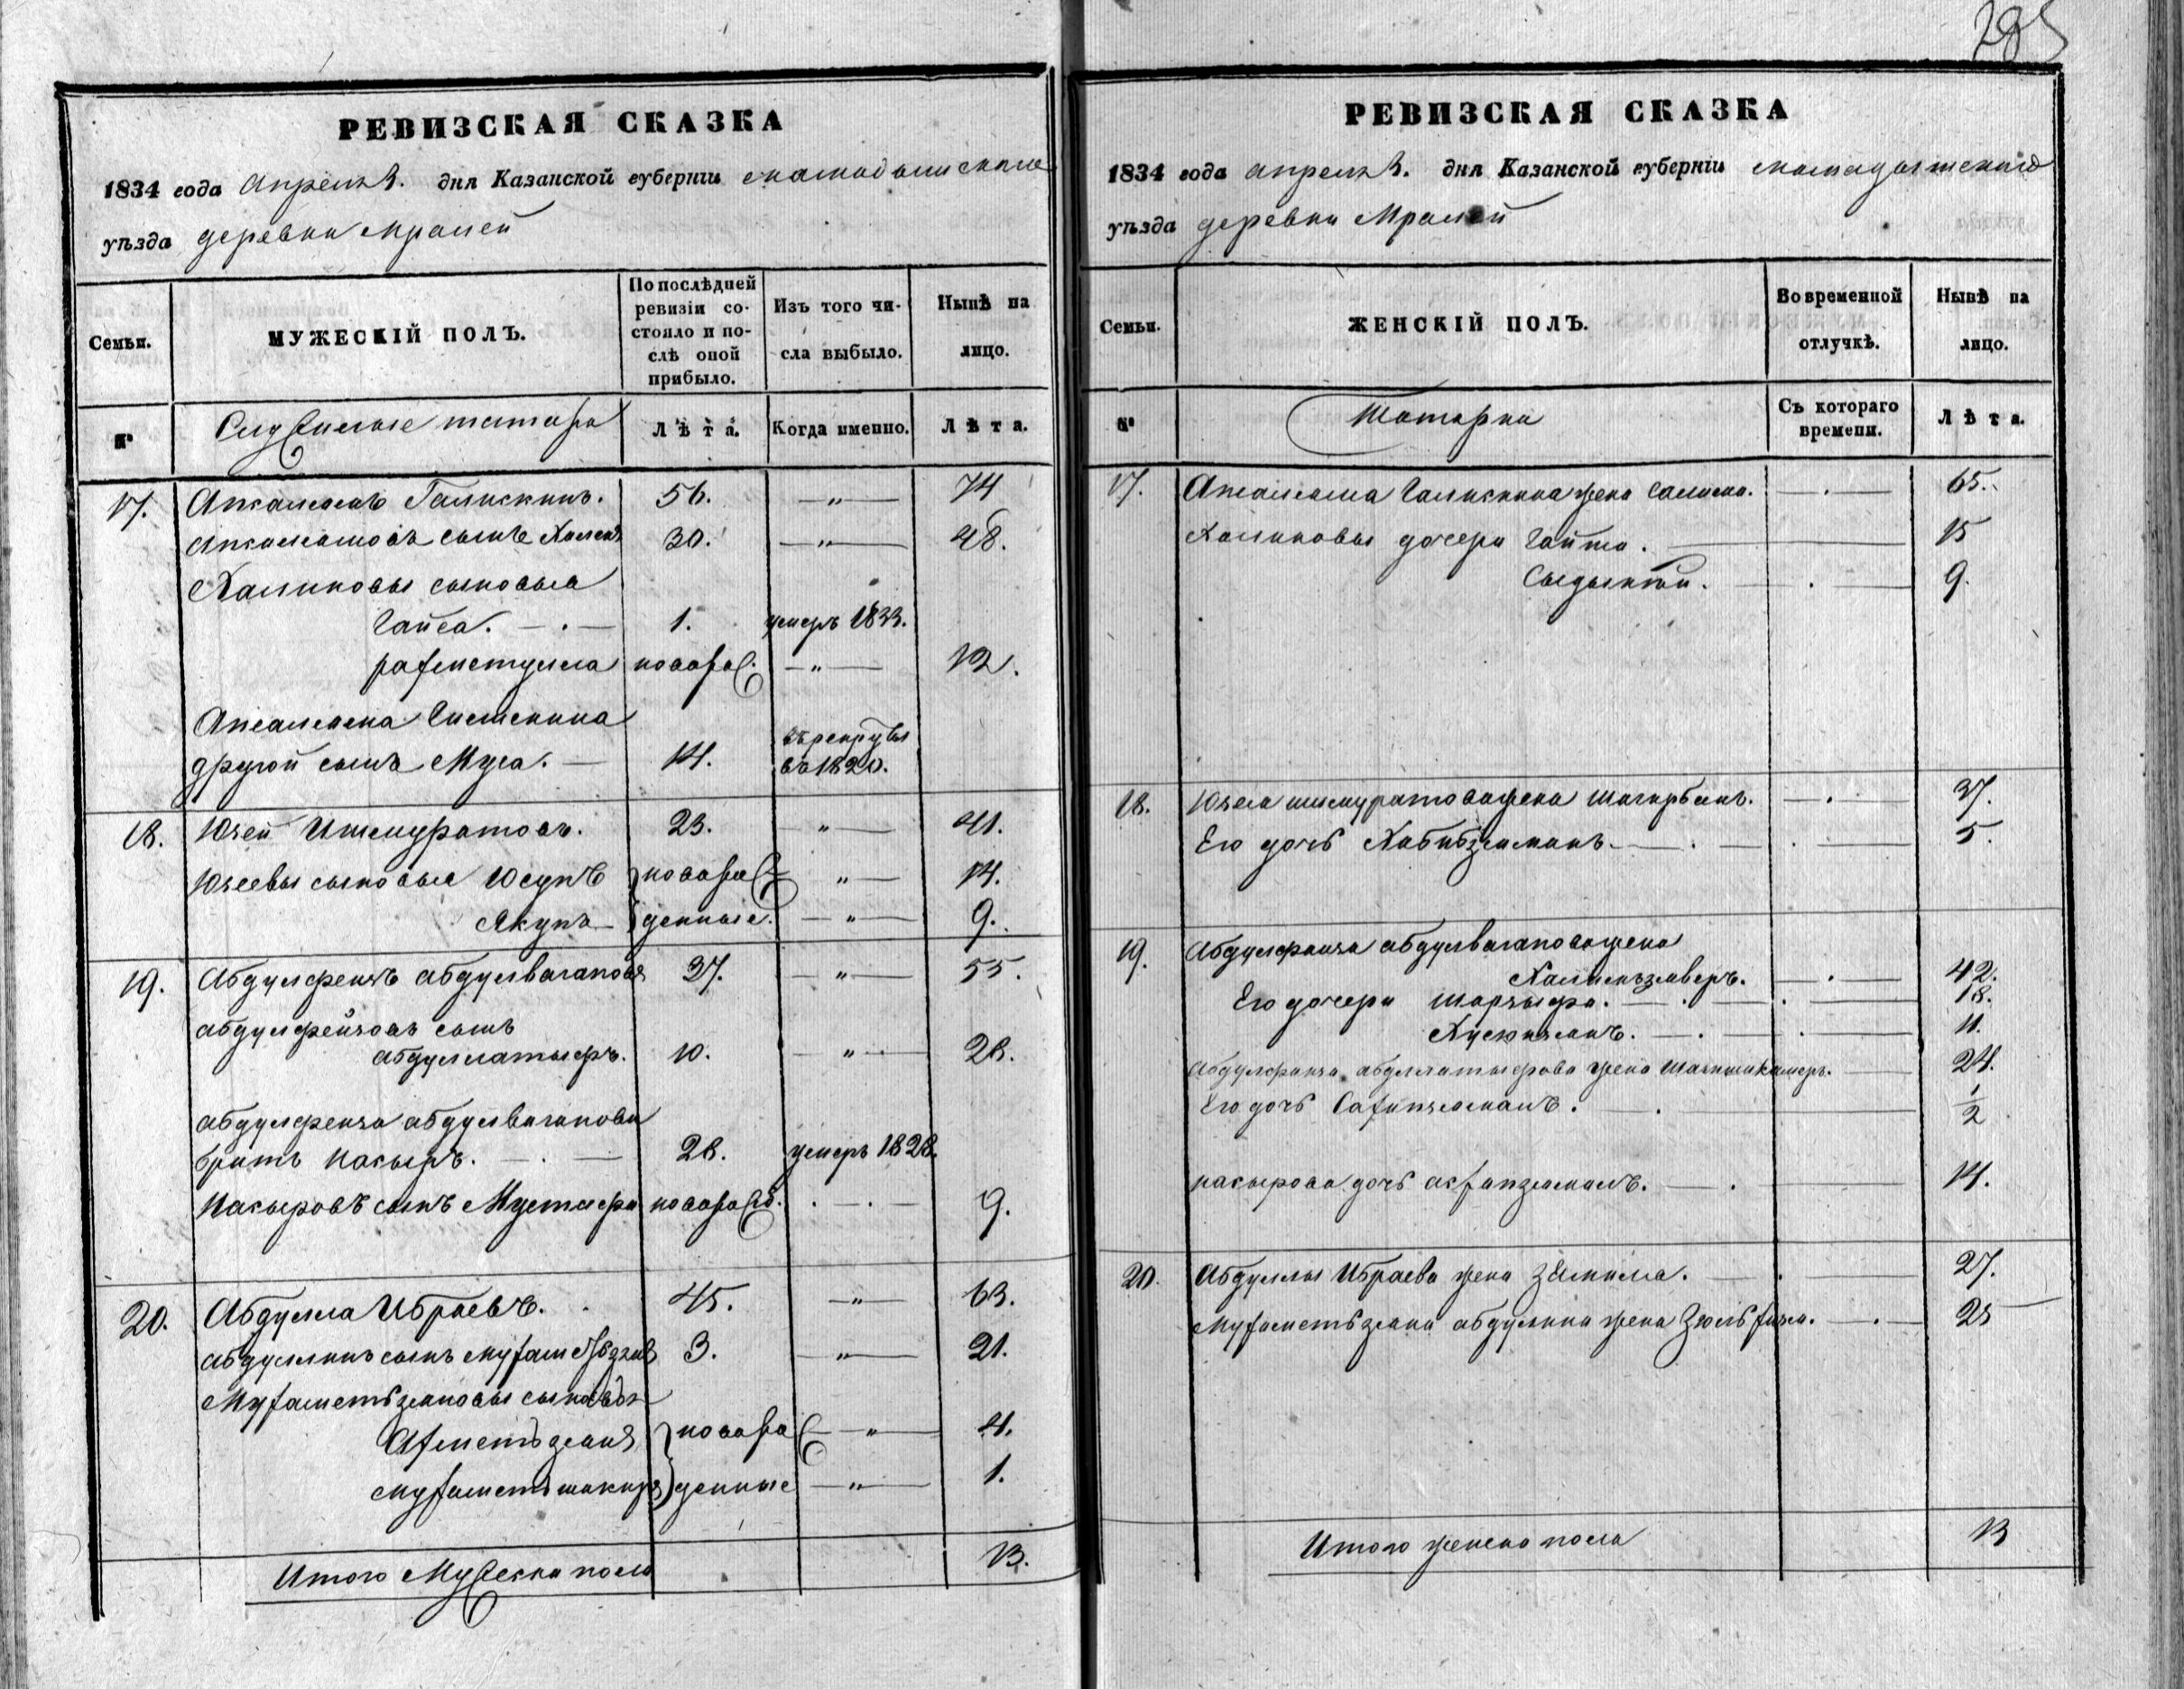 285
РЕВИЗСКАЯ СКАЗКА
1834 года апреля дня Казанской губерніи мамадышскаго
уѣзда деревни Мрамей
Семьи.
МУЖЕСКІЙ ПОЛЪ.
По послѣдней ревизіи состояло и послѣ оной прибыло.
Изъ того числа выбыло.
Нынѣ на лицо.
№
Служилые татара
Лѣта.
Когда именно.
Лѣта.
17. 56. —"— 74
30. —"— 48.
Халиковы сыновья
Гайса. — . — 1. умеръ 1833.
рахметулла новорож. —"— 12.
другой сынъ Муса. — 14. въ рекруты въ 1820.
18. Юзей Ишмуратовъ. 23. " 41.
Юзеевы сыновья Юсупъ новорож " 14.
Якупъ денные. —"— 9.
19. Абдулфеизъ абдулвагаповъ 37. —"— 55.
абдулфейзовъ сынъ
абдуллатыфъ. 10. —"— 28.
абдулфеиза абдулвагапова
братъ насыръ. — . — 28. умеръ 1828.
Насыровъ сынъ Мустафа новорожд. . — . — 9.
20. Абдулла Ибраевъ. 45. —"— 63.
абдуллинъ сынъ мухаметьзянъ 3. —"— 21.
Мухаметьзяновы сыновья
Ахметьзянъ новорож —"— 4.
мухаметьшакиръ денные —"— 1.
Итого Мужеска пола 13.
РЕВИЗСКАЯ СКАЗКА
1834 года апреля дня Казанской губерніи мамадышскаго
уѣзда деревни Мрамей
Семьи.
ЖЕНСКІЙ ПОЛЪ.
Во временной отлучкѣ.
Нынѣ на лицо.
№
Татарки
Съ котораго времени.
Лѣта.
17. жена — . — 65.
Халиковы дочери Гайша. 15
9.
18. Юзея ишмуратова жена Шагирбанъ. — . — 37.
Его дочь Хабибзяманъ. — . — 5.
19. Абдулфаиза абдулвагапова жена
— . — 42.
Его дочери . — 18.
11.
Абдулфаиза абдуллатыфова жена 24.
Его дочь Сахипзяманъ. 1/2
насырова дочь 14.
20. Абдуллы Ибраева жена Зямиля. — 27.
Мухаметьзяна абдулина жена Зюльхиза. — . — 25
Итого женска пола 13